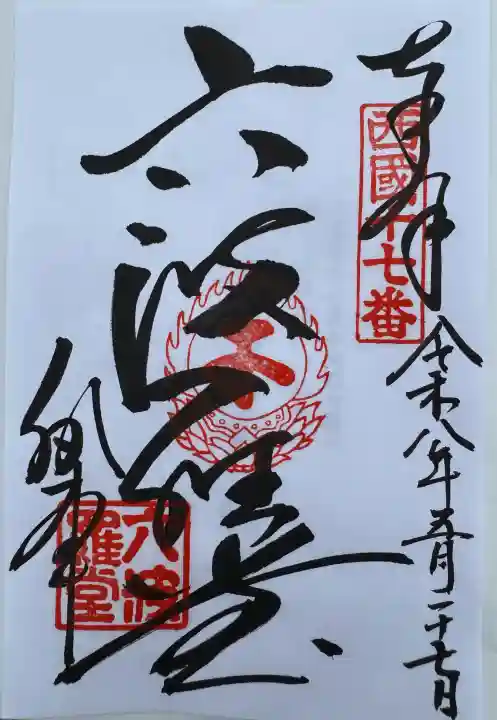 奉拝
西國十七番
令和八年五月二十七日
六波羅堂
六波
羅堂